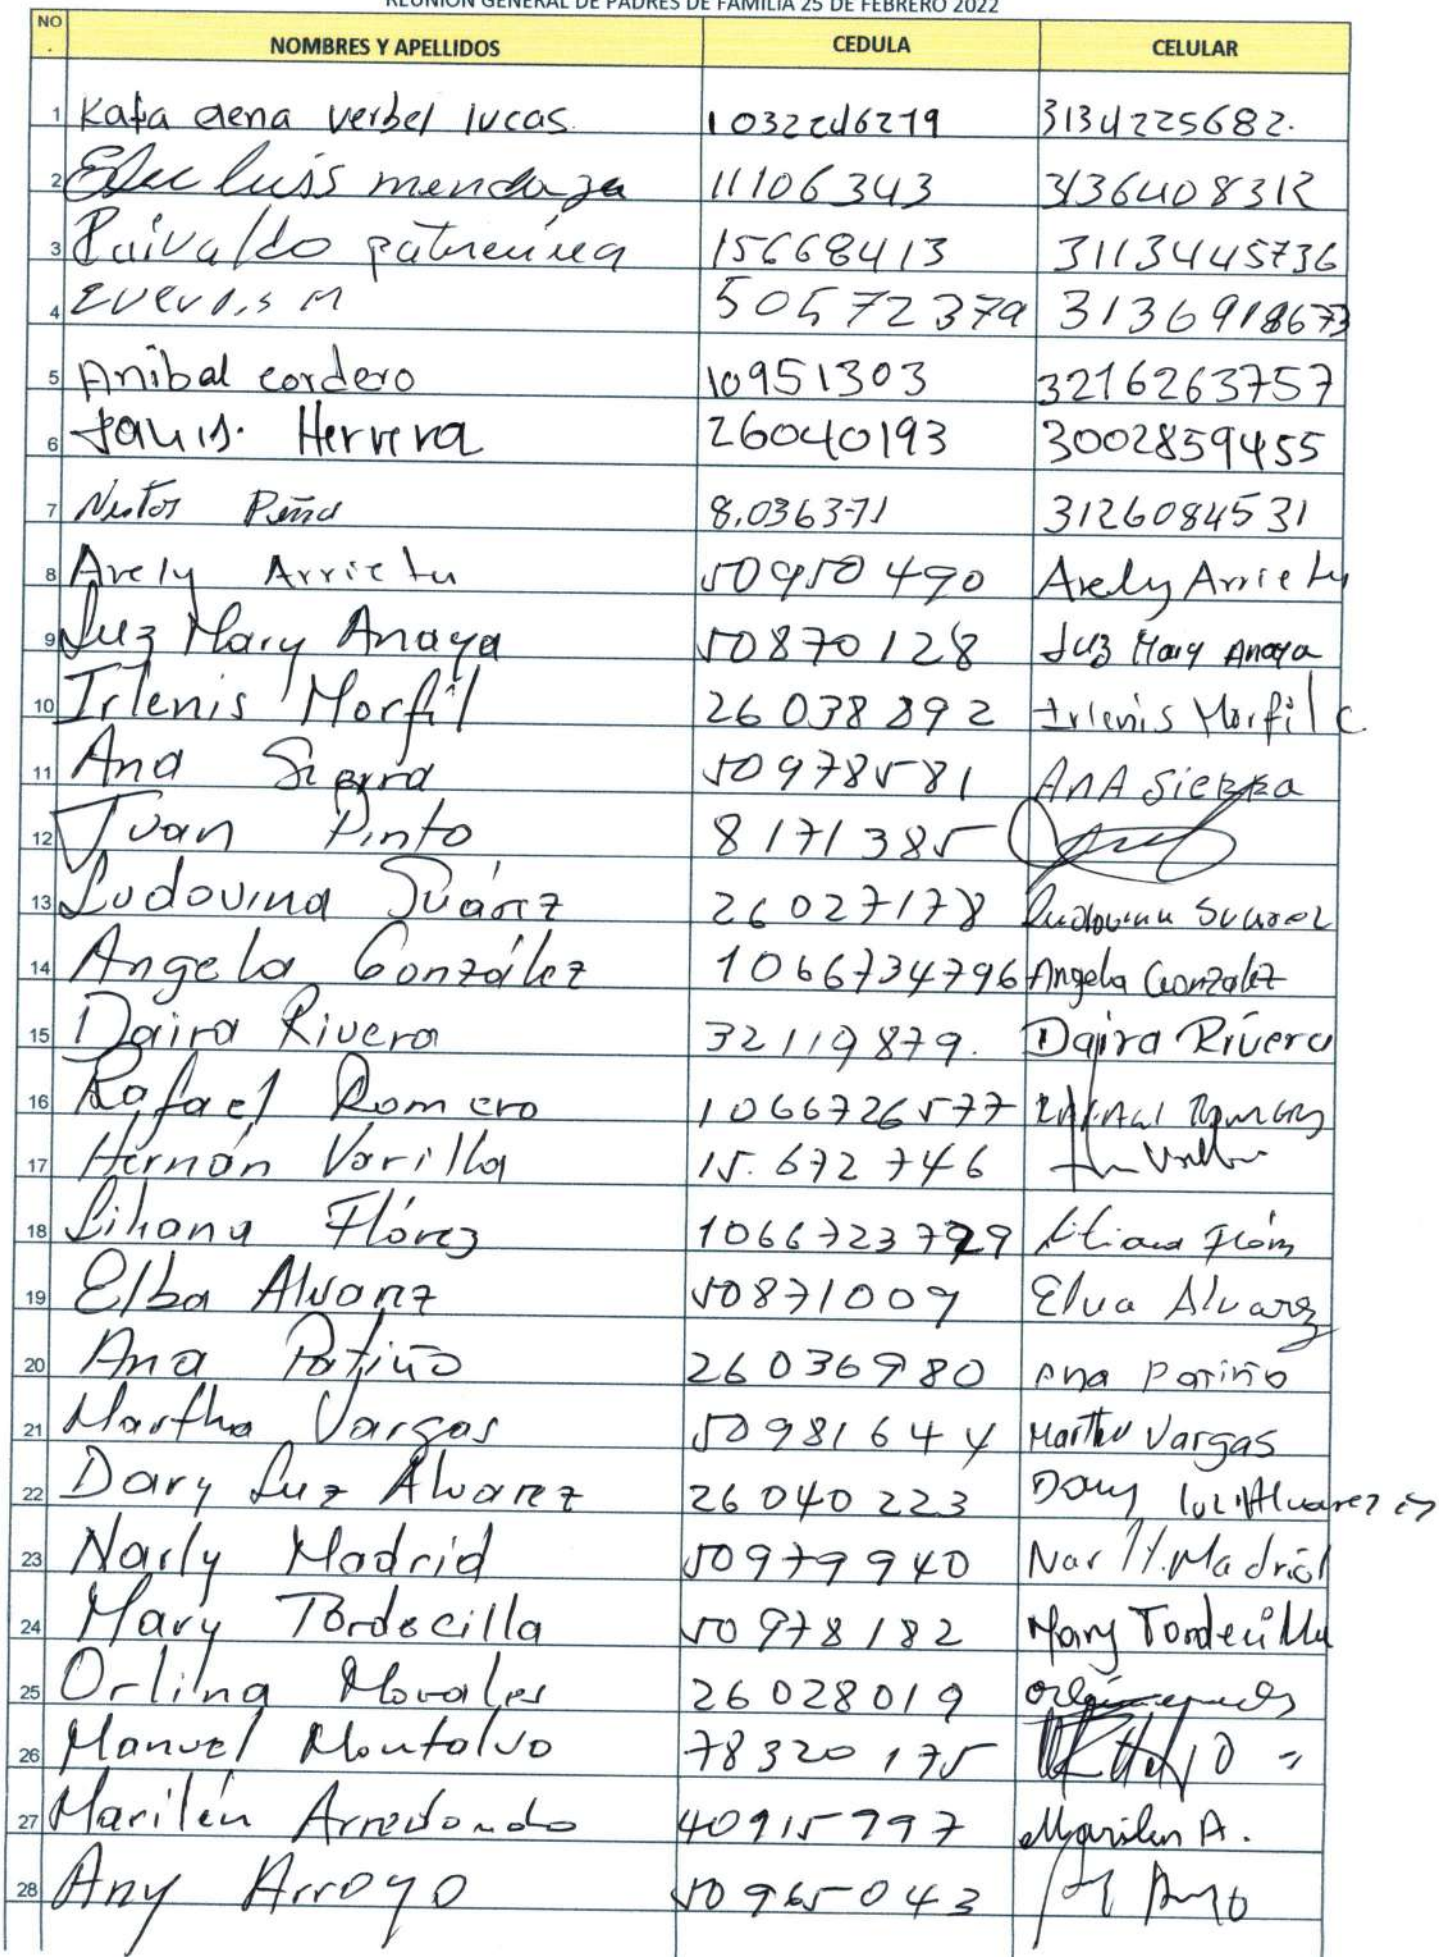 REUNION GENERAL DE PADRES DE FAMILIA 25 DE FEBRERO 2022
NO. NOMBRES Y APELLIDOS CEDULA CELULAR
1 Kata elena verbel lucas. 3134225682.
2 luis mendoza 11106343 3136408312
3 15668413 3113445736
4 M 50572379 3136918673
5 Anibal cordero 10951303 3216263757
6 Herrera 26040193 3002859455
7 Peña 8.036371 3126084531
8 Arely Arrieta 50950490 Arely Arrieta
9 Luz Mary Anaya 50870128 Luz Mary Anaya
10 Irlenis Morfil 26 038 892 Irlenis Morfil C
11 Ana Sierra 50978581 AnA Sierra
12 Juan Pinto 8171385
13 Ludovina Suárez 26 027178 Ludovina Suarez
14 Angela González 1066734796 Angela Gonzalez
15 Daira Rivera 32119879. Daira Rivera
16 Rafael Romero 1066726577 Rafael Romero
17 Hernán Varilla 15.672746
18 Liliana Flórez 1066723729 Liliana Flórez
19 Elba Alvarez 50871009 Elva Alvarez
20 Ana Patiño 26036980 Ana Patiño
21 Martha Vargas 50981644 Martha Vargas
22 Dary Luz Alvarez 26 040 223 Dary luz Alvarez
23 Narly Madrid 50979940 Narly. Madrid
24 Mary Tordecilla 50978182 Mary Tordecilla
25 Orlina Morales 26 028019
26 Manuel Montalvo 78320175
27 Marilén Arredondo 40915797 Marilen A.
28 Any Arroyo 50965043